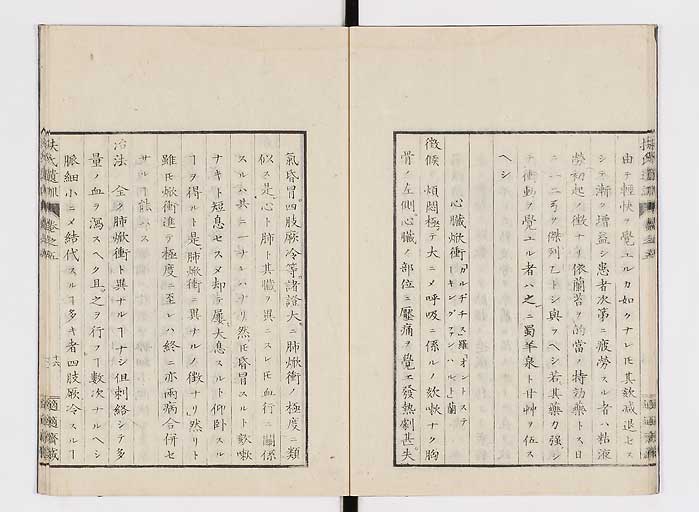 由テ輕快ヲ覺エルカ如クナレ𪜈其欬減退セス
シテ漸ク增益シ患者次第ニ疲勞スル者ハ粘液
勞初起ノ徵ナリ依蘭苔ヲ的當ノ特効藥トス日
ニ一二弓ヲ煎劑トシ與フヘシ若其藥力強シ
テ衝動ヲ覺エル者ハ之ニ蜀羊泉ト甘艸ヲ伍ス
ヘシ
心臟焮衝
徵候 煩悶極テ大ニメ呼吸ニ係ルノ欬嗽ナク胸
骨ノ左側心臟ノ部位ニ壓痛ヲ覺エ發熱劇甚失
氣昏冒四肢厥冷等諸證大ニ肺焮衝ノ極度ニ類
似ス是心ト肺ト其臟ヲ異ニスレ𪜈血行ニ關係
スルハ共ニ一ナレハナリ然𪜈昏冒スルト欬嗽
ナキト短息セスメ却テ屢大息スルト仰臥スル
ヿヲ得ルト是肺焮衝ニ異ナルノ徵ナリ然リト
雖𪜈焮衝進テ極度ニ至レハ終ニ亦兩病合併セ
サルヿ能ハス
治法 全ク肺焮衝ト異ナルヿナシ但刺絡シテ多
量ノ血ヲ瀉スヘク且之ヲ行フヿ數次ナルヘシ
脈細小ニメ結代スルヿ多キ者四肢厥冷スルヿ
扶氏遺訓 卷之五
十六
適適齋藏